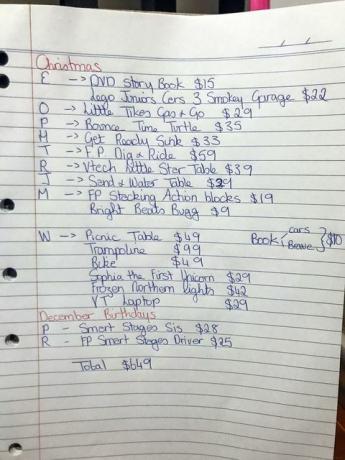 Christmas
E -> DVD Story Book $15
Lego Juniors Cars 3 Smokey Garage $22
O -> Little Tikes Gas & Go $29
P -> Bounce Time Turtle $35
H -> Get Ready Sink $33
T -> F P Dig & Ride $59
R -> Vtech Kittle Star Table $39
J -> Sand & Water Table $29
M -> FP Stacking Action blocks $19
Bright Beats Bugg $9
W -> Picnic Table $49 Book { cars } $10
Trampoline $99
Bike $49
Sophia the First Unicorn $29
Frozen Northern Lights $42
VT Laptop $29
December Birthdays
P - Smart Stages Sis $28
R - FP Smart Stages Driver $25
Total $649